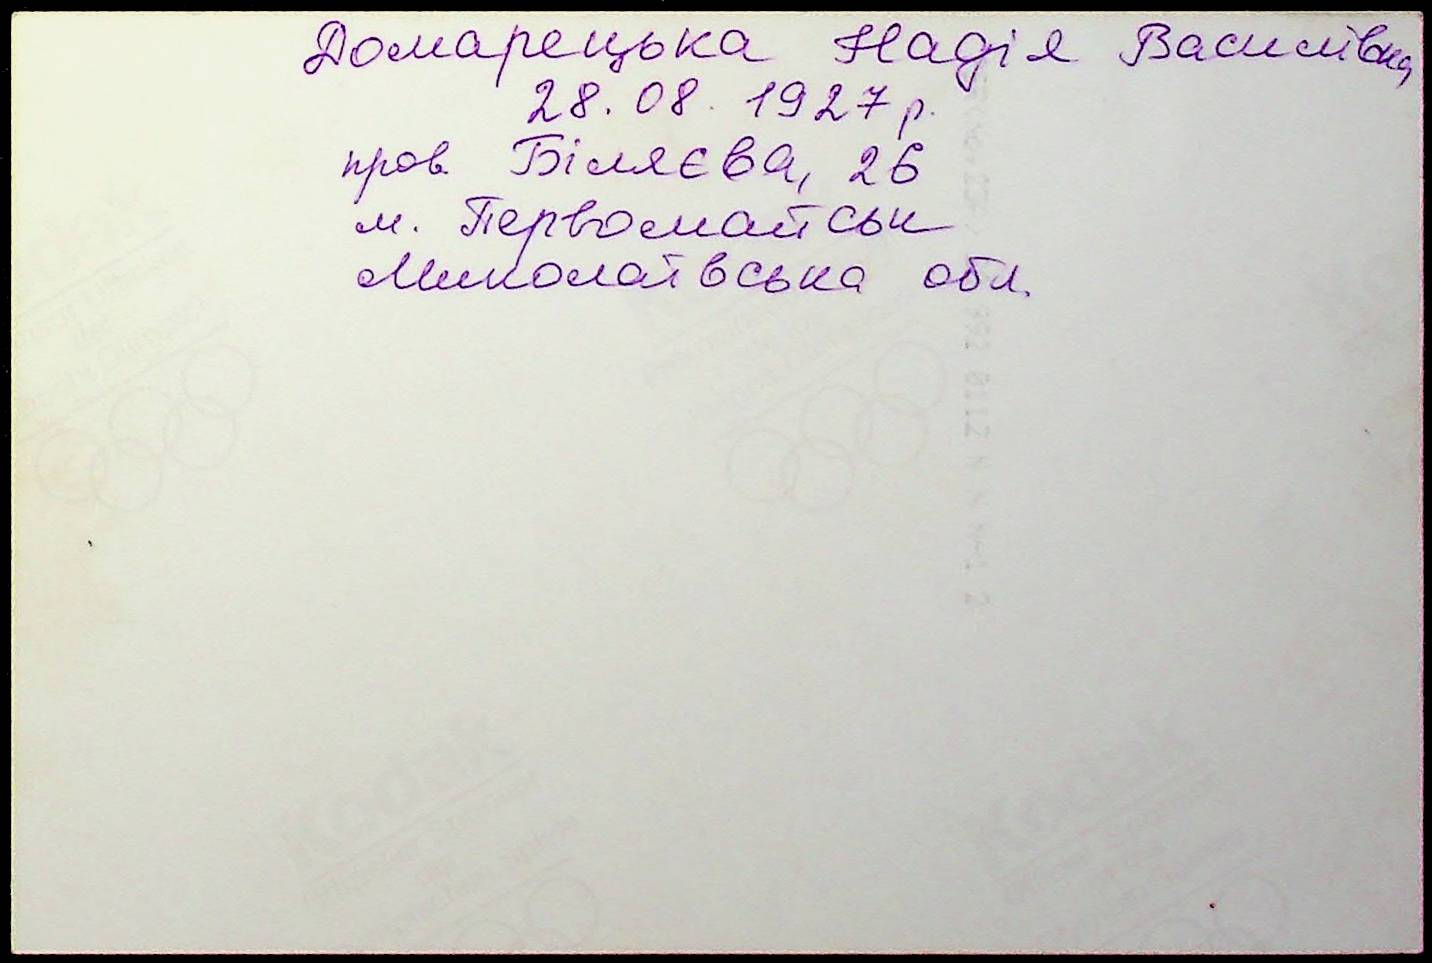 Домарецька Надія Василівна
28.08.1927 р.
пров. Біляєва, 26
м. Первомайськ
Миколаївська обл.
Kodak
Kodak